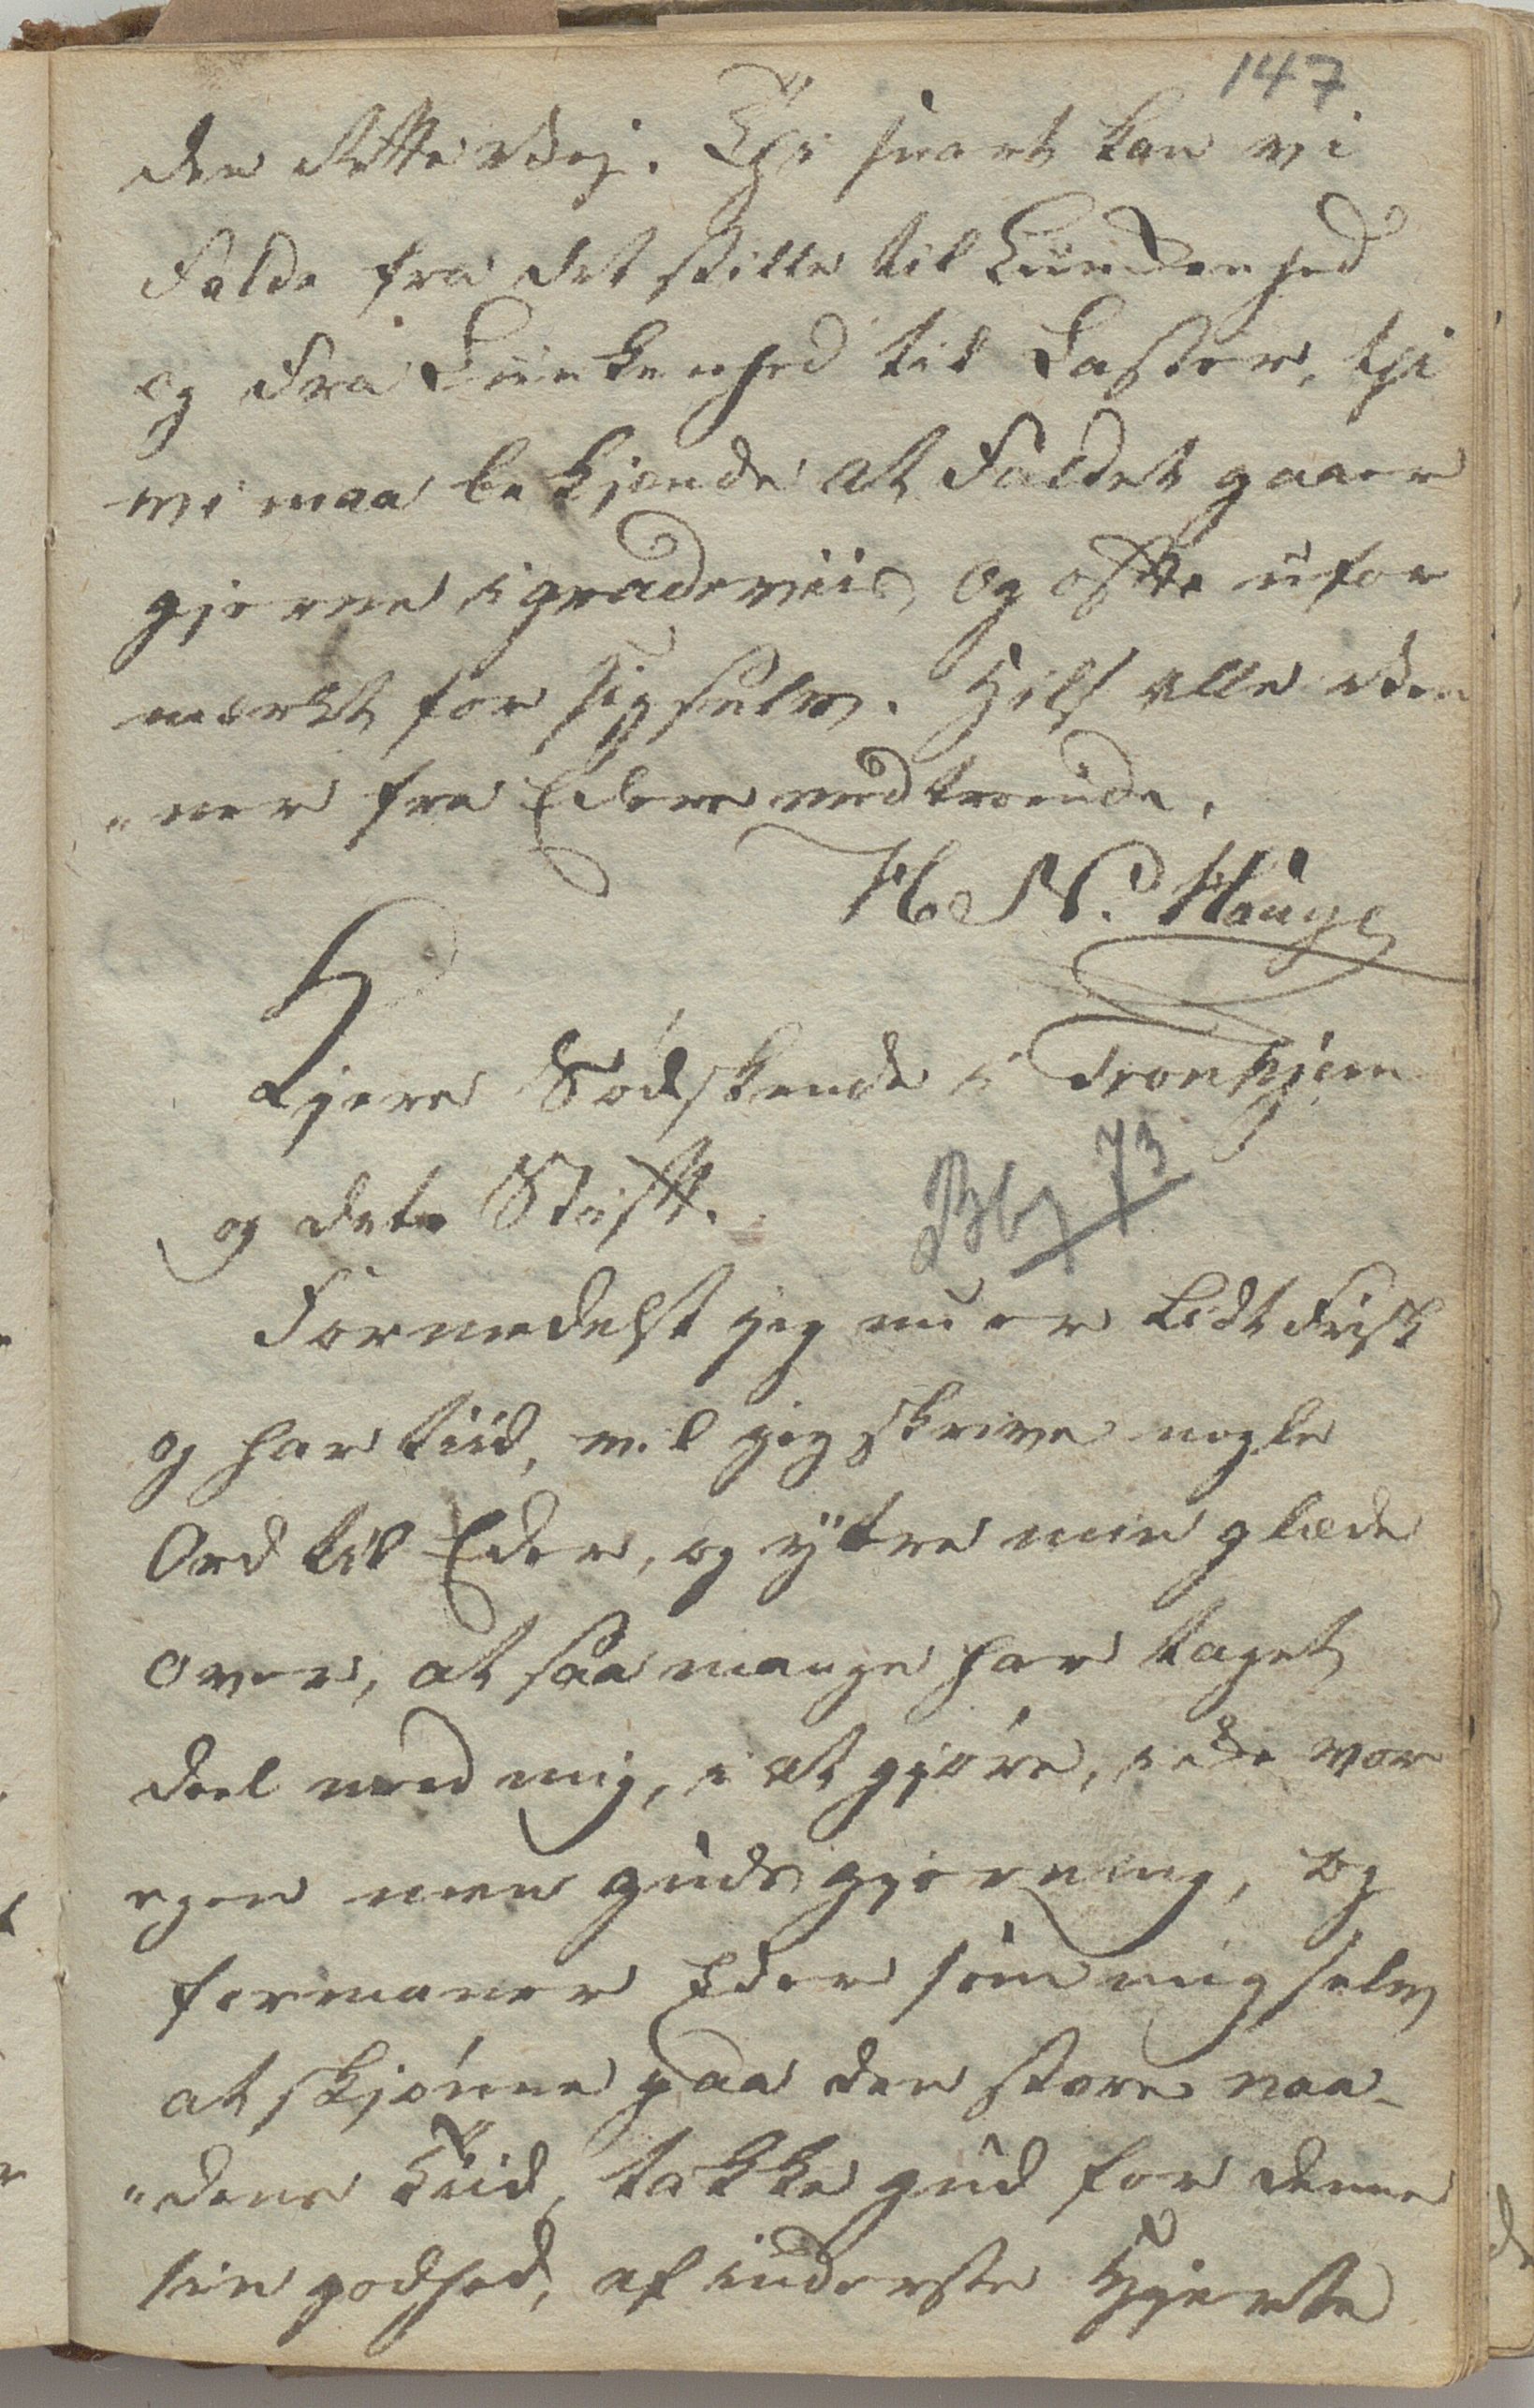 147
den Rette Vej. Thi snart kan vi
Falde fra det stille til Luunkenhed
og Fra Luunkenhed til Laster, thi
vi maa bekjende at Faldet gaaer
gjerne i gradeviis og ofte ufor
mærkt for sig selv. Hils alle Ven
„ner fra Eders medtroende,
H N. Hauge
Kjere Sødskende i Tronhjem
og dets Stift.
Bb, 73
Formedelst jeg nu er lidt Frisk
og har tiid, vil jeg skrive nogle
Ord til Eder, og ÿtre min glæde
over, at saa mange har taget
deel med mig, i at gjøre, ikke vor
egen men guds gjerning, og
formaner Eder som mig selv
at skjønne paa den store naa-
„dens Tiid, takke gud for denne
sin godhed, af inderste Hjerte